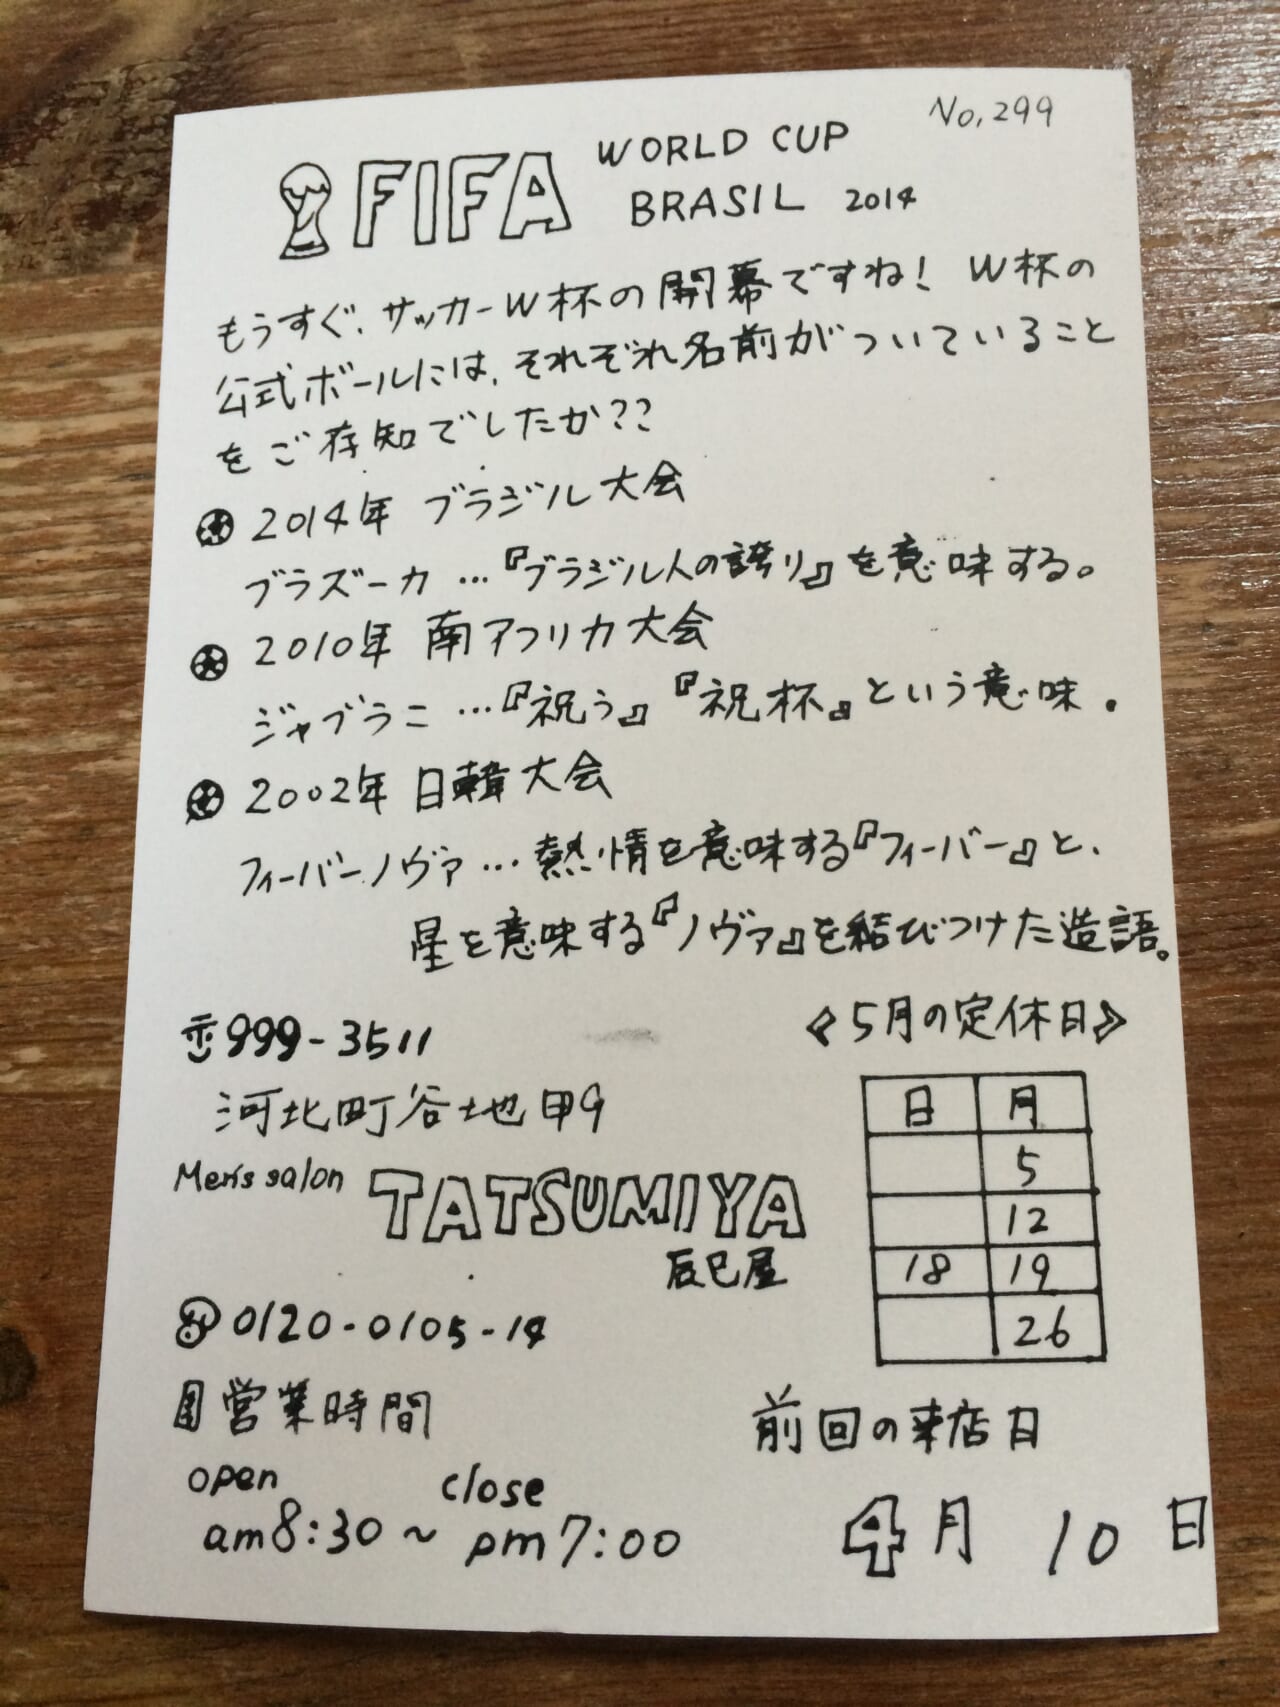 No.299
FIFA WORLD CUP
BRASIL 2014
もうすぐ、サッカーW杯の開幕ですね! W杯の
公式ボールには、それぞれ名前がついていること
をご存知でしたか??
2014年 ブラジル大会
ブラズーカ …『ブラジル人の誇り』を意味する。
2010年 南アフリカ大会
ジャブラニ …『祝う』『祝杯』という意味.
2002年 日韓大会
フィーバーノヴァ …熱情を意味する『フィーバー』と、
星を意味する『ノヴァ』を結びつけた造語。
〒999-3511
河北町谷地甲9
Men's salon TATSUMIYA
辰巳屋
0120-0105-14
営業時間
open close
am8:30~pm7:00
《5月の定休日》
日 月
5
12
18 19
26
前回の来店日
4月 10日